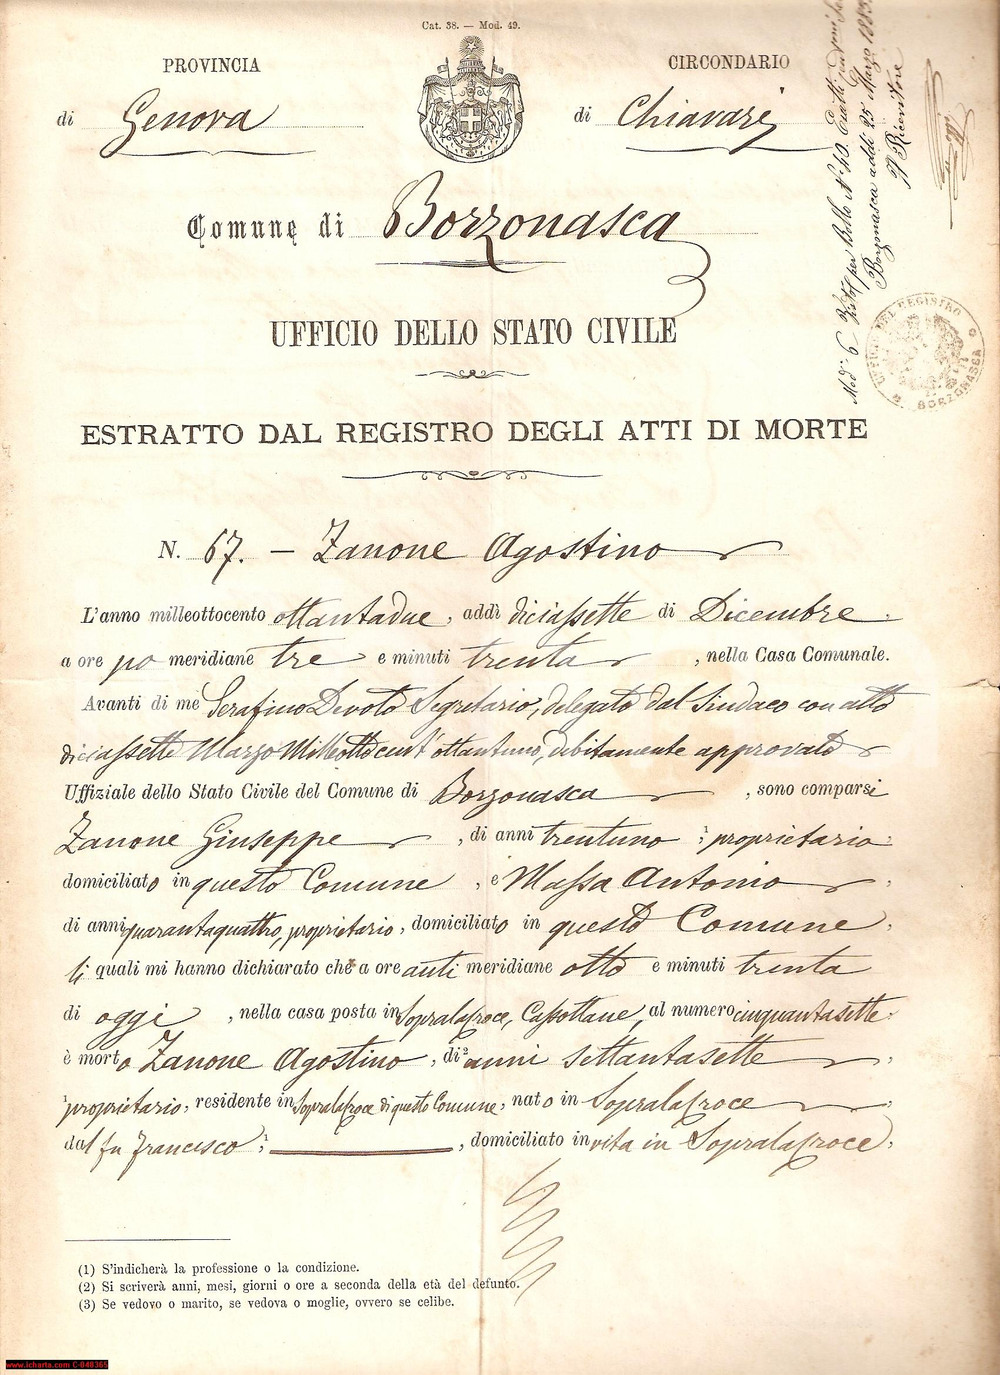 Cat. 38. — Mod. 49.
PROVINCIA
di Genova
CIRCONDARIO
di Chiavari
Comune di Borzonasca
UFFICIO DELLO STATO CIVILE
ESTRATTO DAL REGISTRO DEGLI ATTI DI MORTE
N. 67. — Zanone Agostino
L'anno milleottocento ottantadue, addì diciassette di Dicembre,
a ore po meridiane tre e minuti trenta, nella Casa Comunale.
Avanti di me Serafino Devoto Segretario, delegato dal Sindaco con atto
diciassette Marzo Milleottocent'ottantuno, debitamente approvato
Uffiziale dello Stato Civile del Comune di Borzonasca, sono comparsi
Zanone Giuseppe, di anni trentuno, ¹ proprietario
domiciliato in questo Comune, e Massa Antonio,
di anni quarantaquattro, proprietario, domiciliato in questo Comune,
li quali mi hanno dichiarato che a ore anti meridiane otto e minuti trenta
di oggi, nella casa posta in Sopralacroce, Cassottane, al numero cinquantasette,
è morto Zanone Agostino, di ² anni settantasette,
¹ proprietario, residente in Sopralacroce di questo Comune, nato in Sopralacroce,
dal fu Francesco, ¹, domiciliato in vita in Sopralacroce,
(1) S'indicherà la professione o la condizione.
(2) Si scriverà anni, mesi, giorni o ore a seconda della età del defunto.
(3) Se vedovo o marito, se vedova o moglie, ovvero se celibe.
Mod. 6 per Bollo N. 40. Esatti
Borzonasca addì 25 Marzo 1883
Il Ricevitore
UFFIZIO DEL REGISTRO
BORZONASCA
www.icharta.com C-040365